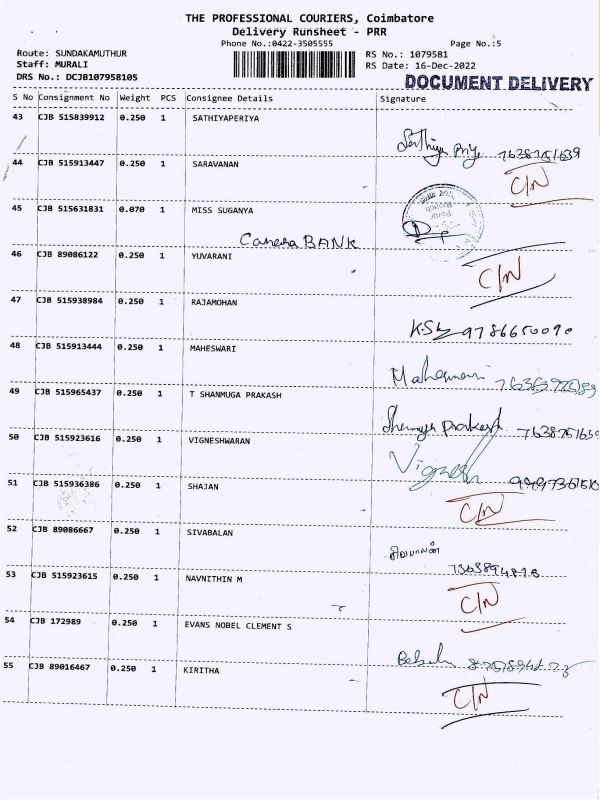 THE PROFESSIONAL COURIERS, Coimbatore
Delivery Runsheet - PRR
Phone No.:0422-3505555 Page No.:5
Route: SUNDAKAMUTHUR RS No.: 1079581
Staff: MURALI RS Date: 16-Dec-2022
DRS No.: DCJB107958105
DOCUMENT DELIVERY
S No Consignment No Weight PCS Consignee Details Signature
43 CJB 515839912 0.250 1 SATHIYAPERIYA
Sathiya Priya
44 CJB 515913447 0.250 1 SARAVANAN
C/N
45 CJB 515631831 0.070 1 MISS SUGANYA
Canera BANK
46 CJB 89086122 0.250 1 YUVARANI
C/N
47 CJB 515938984 0.250 1 RAJAMOHAN
9786650090
48 CJB 515913444 0.250 1 MAHESWARI
49 CJB 515965437 0.250 1 T SHANMUGA PRAKASH
Shanmuga Prakash
50 CJB 515923616 0.250 1 VIGNESHWARAN
Vignesh
51 CJB 515936386 0.250 1 SHAJAN
C/N
52 CJB 89086667 0.250 1 SIVABALAN
சிவபாலன்
53 CJB 515923615 0.250 1 NAVNITHIN M
C/N
54 CJB 172989 0.250 1 EVANS NOBEL CLEMENT S
55 CJB 89016467 0.250 1 KIRITHA
C/N